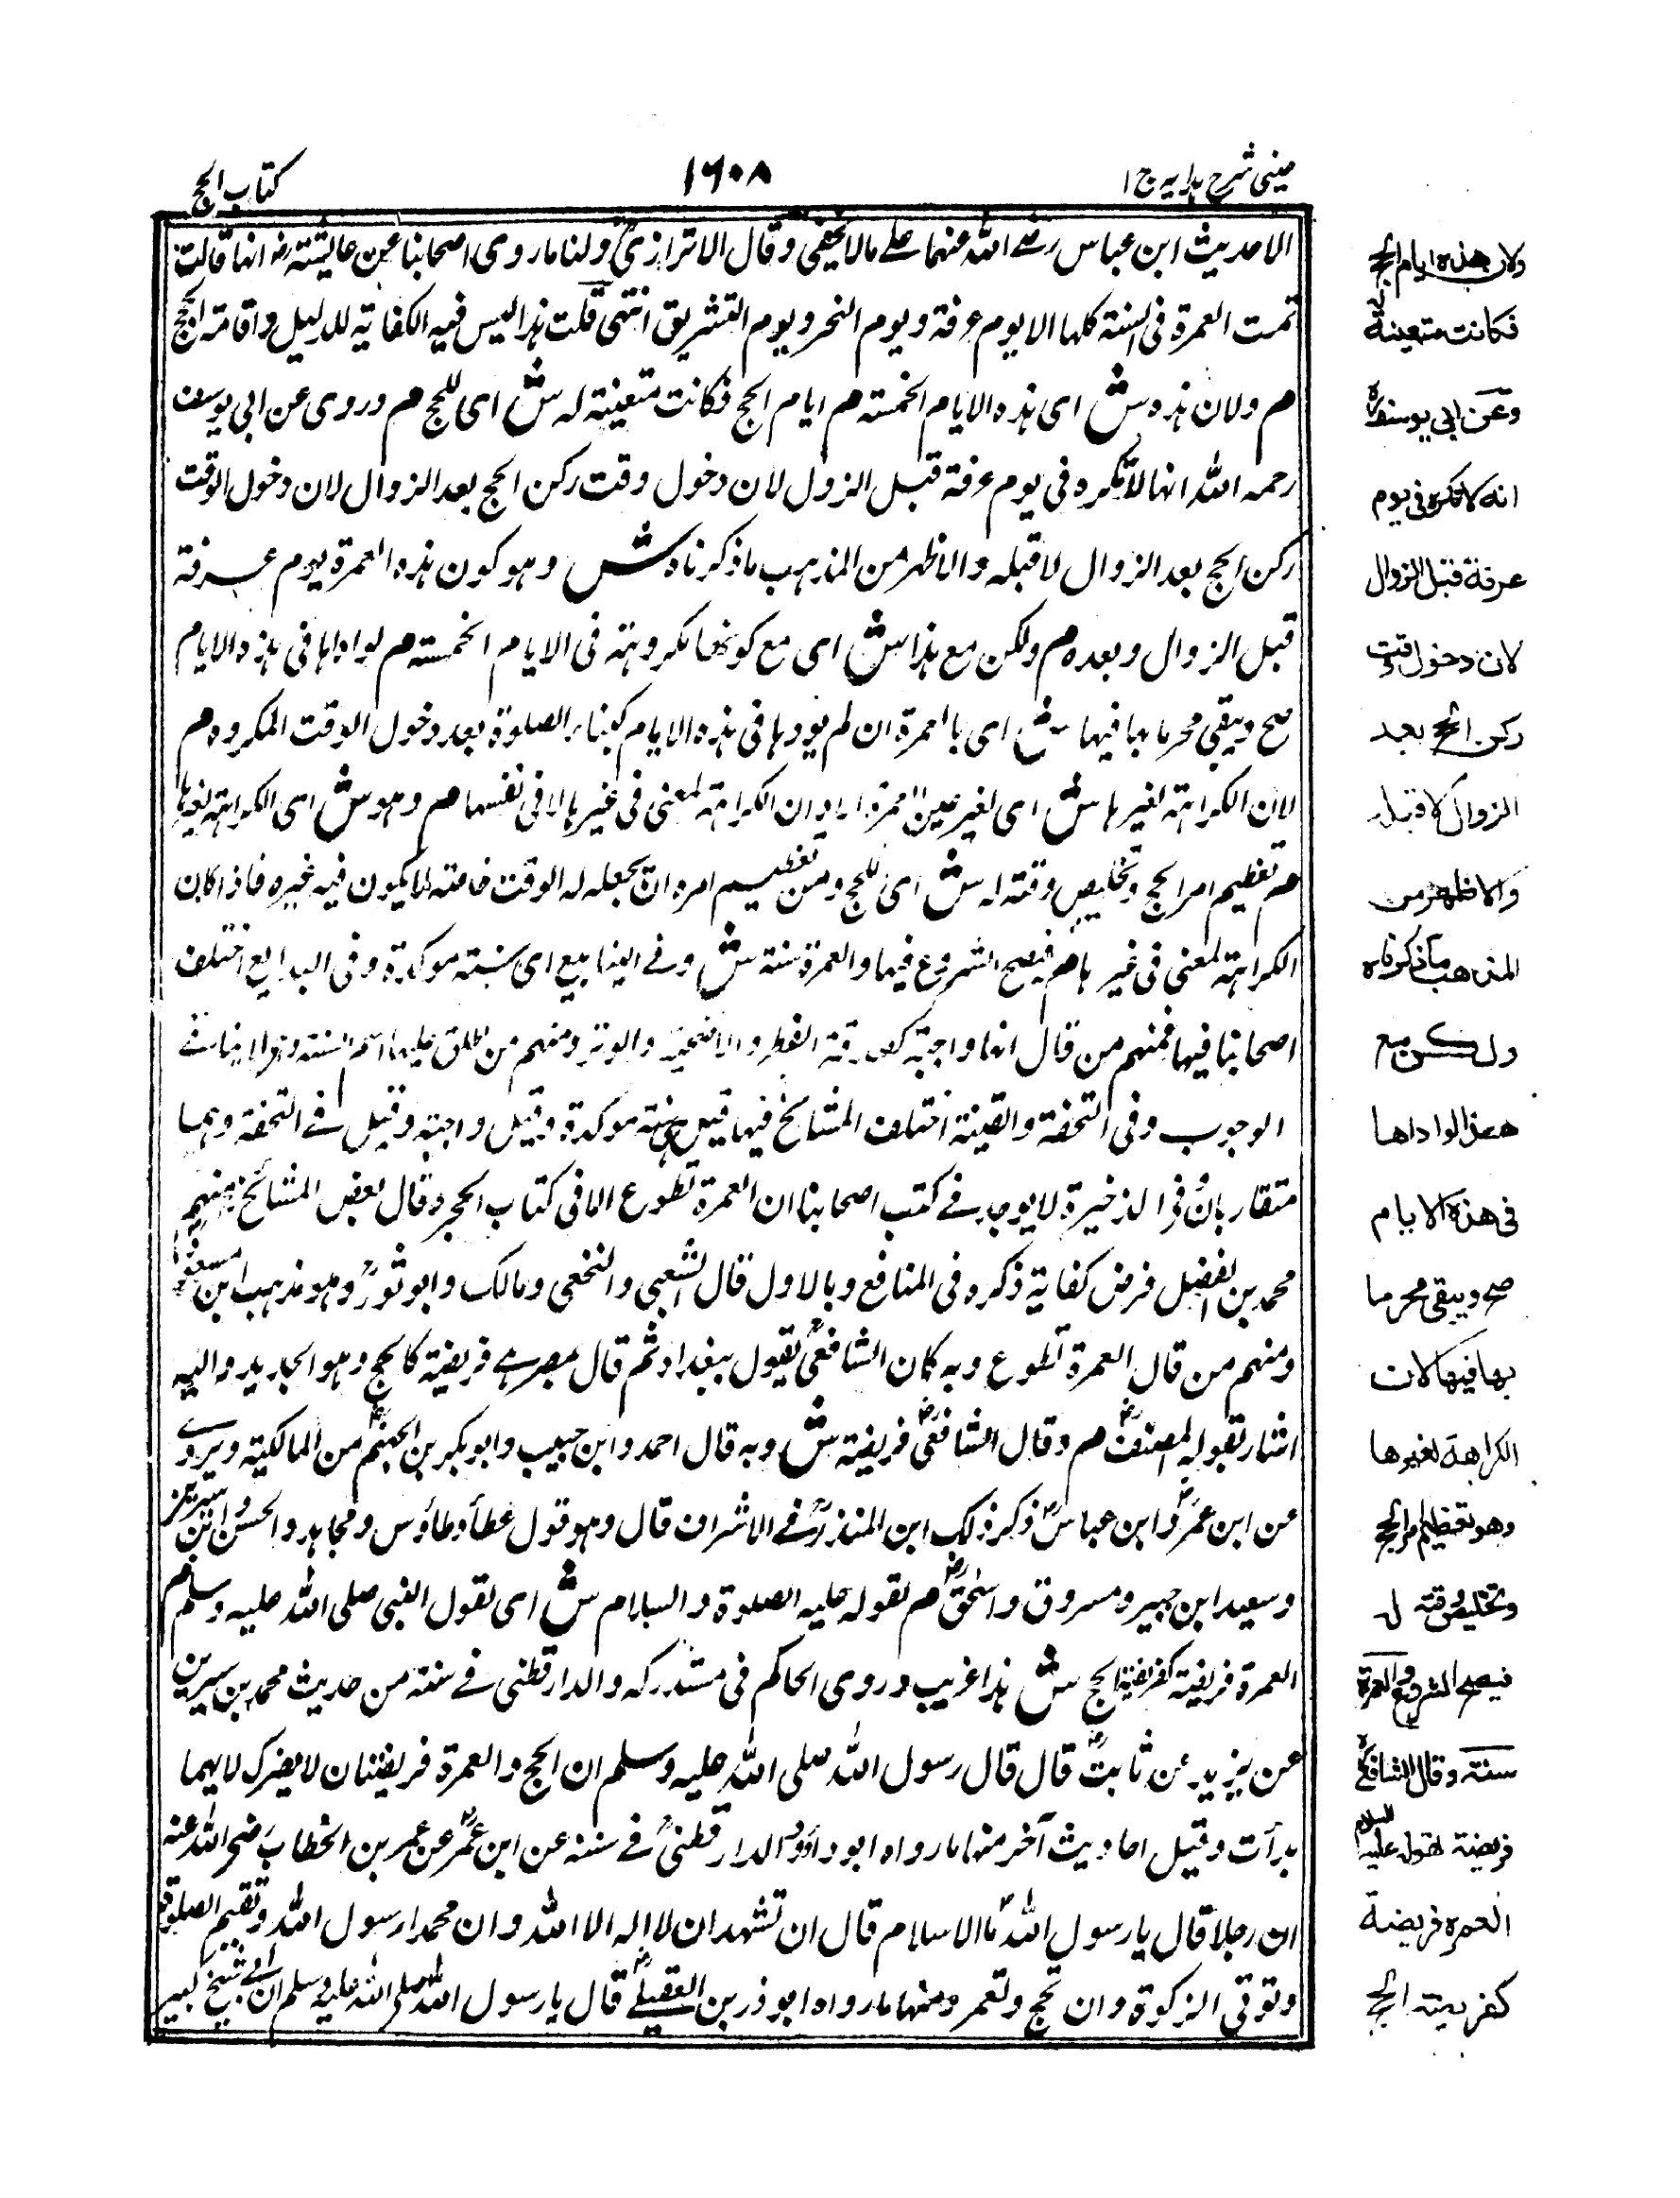 عینی شرح ہدایہ ج ۱
۱۶۰۸
کتاب الحج
الا حدیث ابن عباس رضی الله عنهما علی مالا یخفی وقال الاترازی ولنا ما روی اصحابنا عن عایشته رض انها قالت
تمت العمرة فی السنة کلها الا یوم عرفة ویوم النحر ویوم التشریق انتهی قلت هذا لیس فیه الکفایة للدلیل واقامة الحج
م ولان هذه ش ای هذه الایام الخمسته م ایام الحج فکانت متعینة له ش ای للحج م وروی عن ابی یوسف
رحمه الله انها لا تکره فی یوم عرفة قبل الزوال لان دخول وقت رکن الحج بعد الزوال لان دخول الوقت
رکن الحج بعد الزوال لا قبله والاظهر من المذهب ما ذکرناه ش وهو کون هذه العمرة یوم عرفة
قبل الزوال وبعده م ولکن مع هذا ش ای مع کونها مکروهة فی الایام الخمسته م لو اداها فی هذه الایام
صح ویبقی محرما بها فیها ش ای بالعمرة ان لم یودها فی هذه الایام کبناء الصلوة بعد دخول الوقت المکروه م
لان الکراهته لغیرها ش ای لغیر عین العمرة اراد ان الکراهة لمعنی فی غیرها لا فی نفسها م وهو ش ای الکراهته لغیرها
م تعظیم امر الحج وتخلیص وقته له ش ای للحج ومن تعظیم امره ان یجعله له الوقت خاصته لا یکون فیه غیره فاذا کان
الکراهته لمعنی فی غیرها م فیصح الشروع فیها والعمرة سنة ش وفی الینابیع ای سنته موکدة وفی البدایع اختلف
اصحابنا فیها فمنهم من قال انها واجبة کصدقة الفطر والاضحیة والوتر ومنهم من اطلق علیها اسم السنته وهذا لا ینافی
الوجوب وفی التحفة والقنیة اختلف المشائخ فیها قیل سنة موکدة وقیل واجبة وقیل فی التحفة وهما
متقاربان وفی الذخیرة لا یوجد فی کتب اصحابنا ان العمرة تطوع الا فی کتاب الحجر وقال بعض المشائخ منهم
محمد بن الفضل فرض کفایة ذکره فی المنافع وبالاول قال الشعبی والنخعی ومالک وابو ثور وهو مذهب ابن مسعود
ومنهم من قال العمرة تطوع وبه کان الشافعی یقول ببغداد ثم قال بمصر هی فریضة کالحج وهو الجدید والیه
اشار بقوله المصنف م وقال الشافعی فریضة ش وبه قال احمد وابن حبیب وابو بکر بن الجهم من المالکیة ویروی
عن ابن عمر وابن عباس ذکر ذلک ابن المنذر فی الاشراف قال وهو قول عطأ وطاؤس ومجاهد والحسن وابن سیرین
وسعید ابن جبیر ومسروق واسحٰق م لقوله علیه الصلوة والسلام ش ای لقول النبی صلی الله علیه وسلم
العمرة فریضة کفریضة الحج ش هذا غریب وروی الحاکم فی مستدرکه والدارقطنی فی سننه من حدیث محمد بن سیرین
عن یزید عن ثابت قال قال رسول الله صلی الله علیه وسلم ان الحج والعمرة فریضتان لا یضرک لایهما
بدأت وقیل احادیث آخر منها ما رواه ابو داؤد والدارقطنی فی سننه عن ابن عمر عن عمر بن الخطاب رضی الله عنه
ان رجلا قال یا رسول الله ما الاسلام قال ان تشهد ان لا اله الا الله وان محمدا رسول الله وتقیم الصلوة
وتوتی الزکوة وان تحج وتعمر ومنها ما رواه ابو ذر بن العقیلی قال یا رسول الله صلی الله علیه وسلم ان ابی شیخ کبیر
ولان هذه ایام الحج
فکانت متعینة له
وعن ابی یوسف
انه لا تکره فی یوم
عرفة قبل الزوال
لان دخول وقت
رکن الحج بعد
الزوال لا قبله
والاظهر من
المذهب ما ذکرناه
ولکن مع
هذا لو اداها
فی هذه الایام
صح ویبقی محرما
بها فیها لان
الکراهة لغیرها
وهو تعظیم امر الحج
وتخلیص وقته له
فیصح الشروع والعمرة
سنة وقال الشافعی
فریضة لقوله علیه السلام
العمرة فریضة
کفریضة الحج